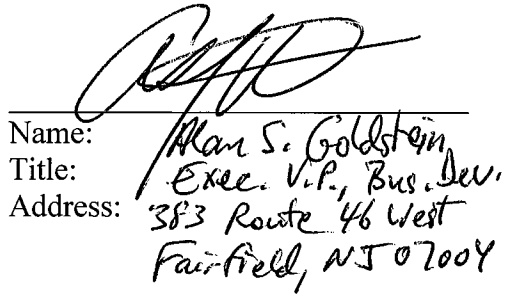 Name: Alan S. Goldstein
Title: Exec. V.P., Bus. Dev.
Address: 383 Route 46 West
Fairfield, NJ 07004